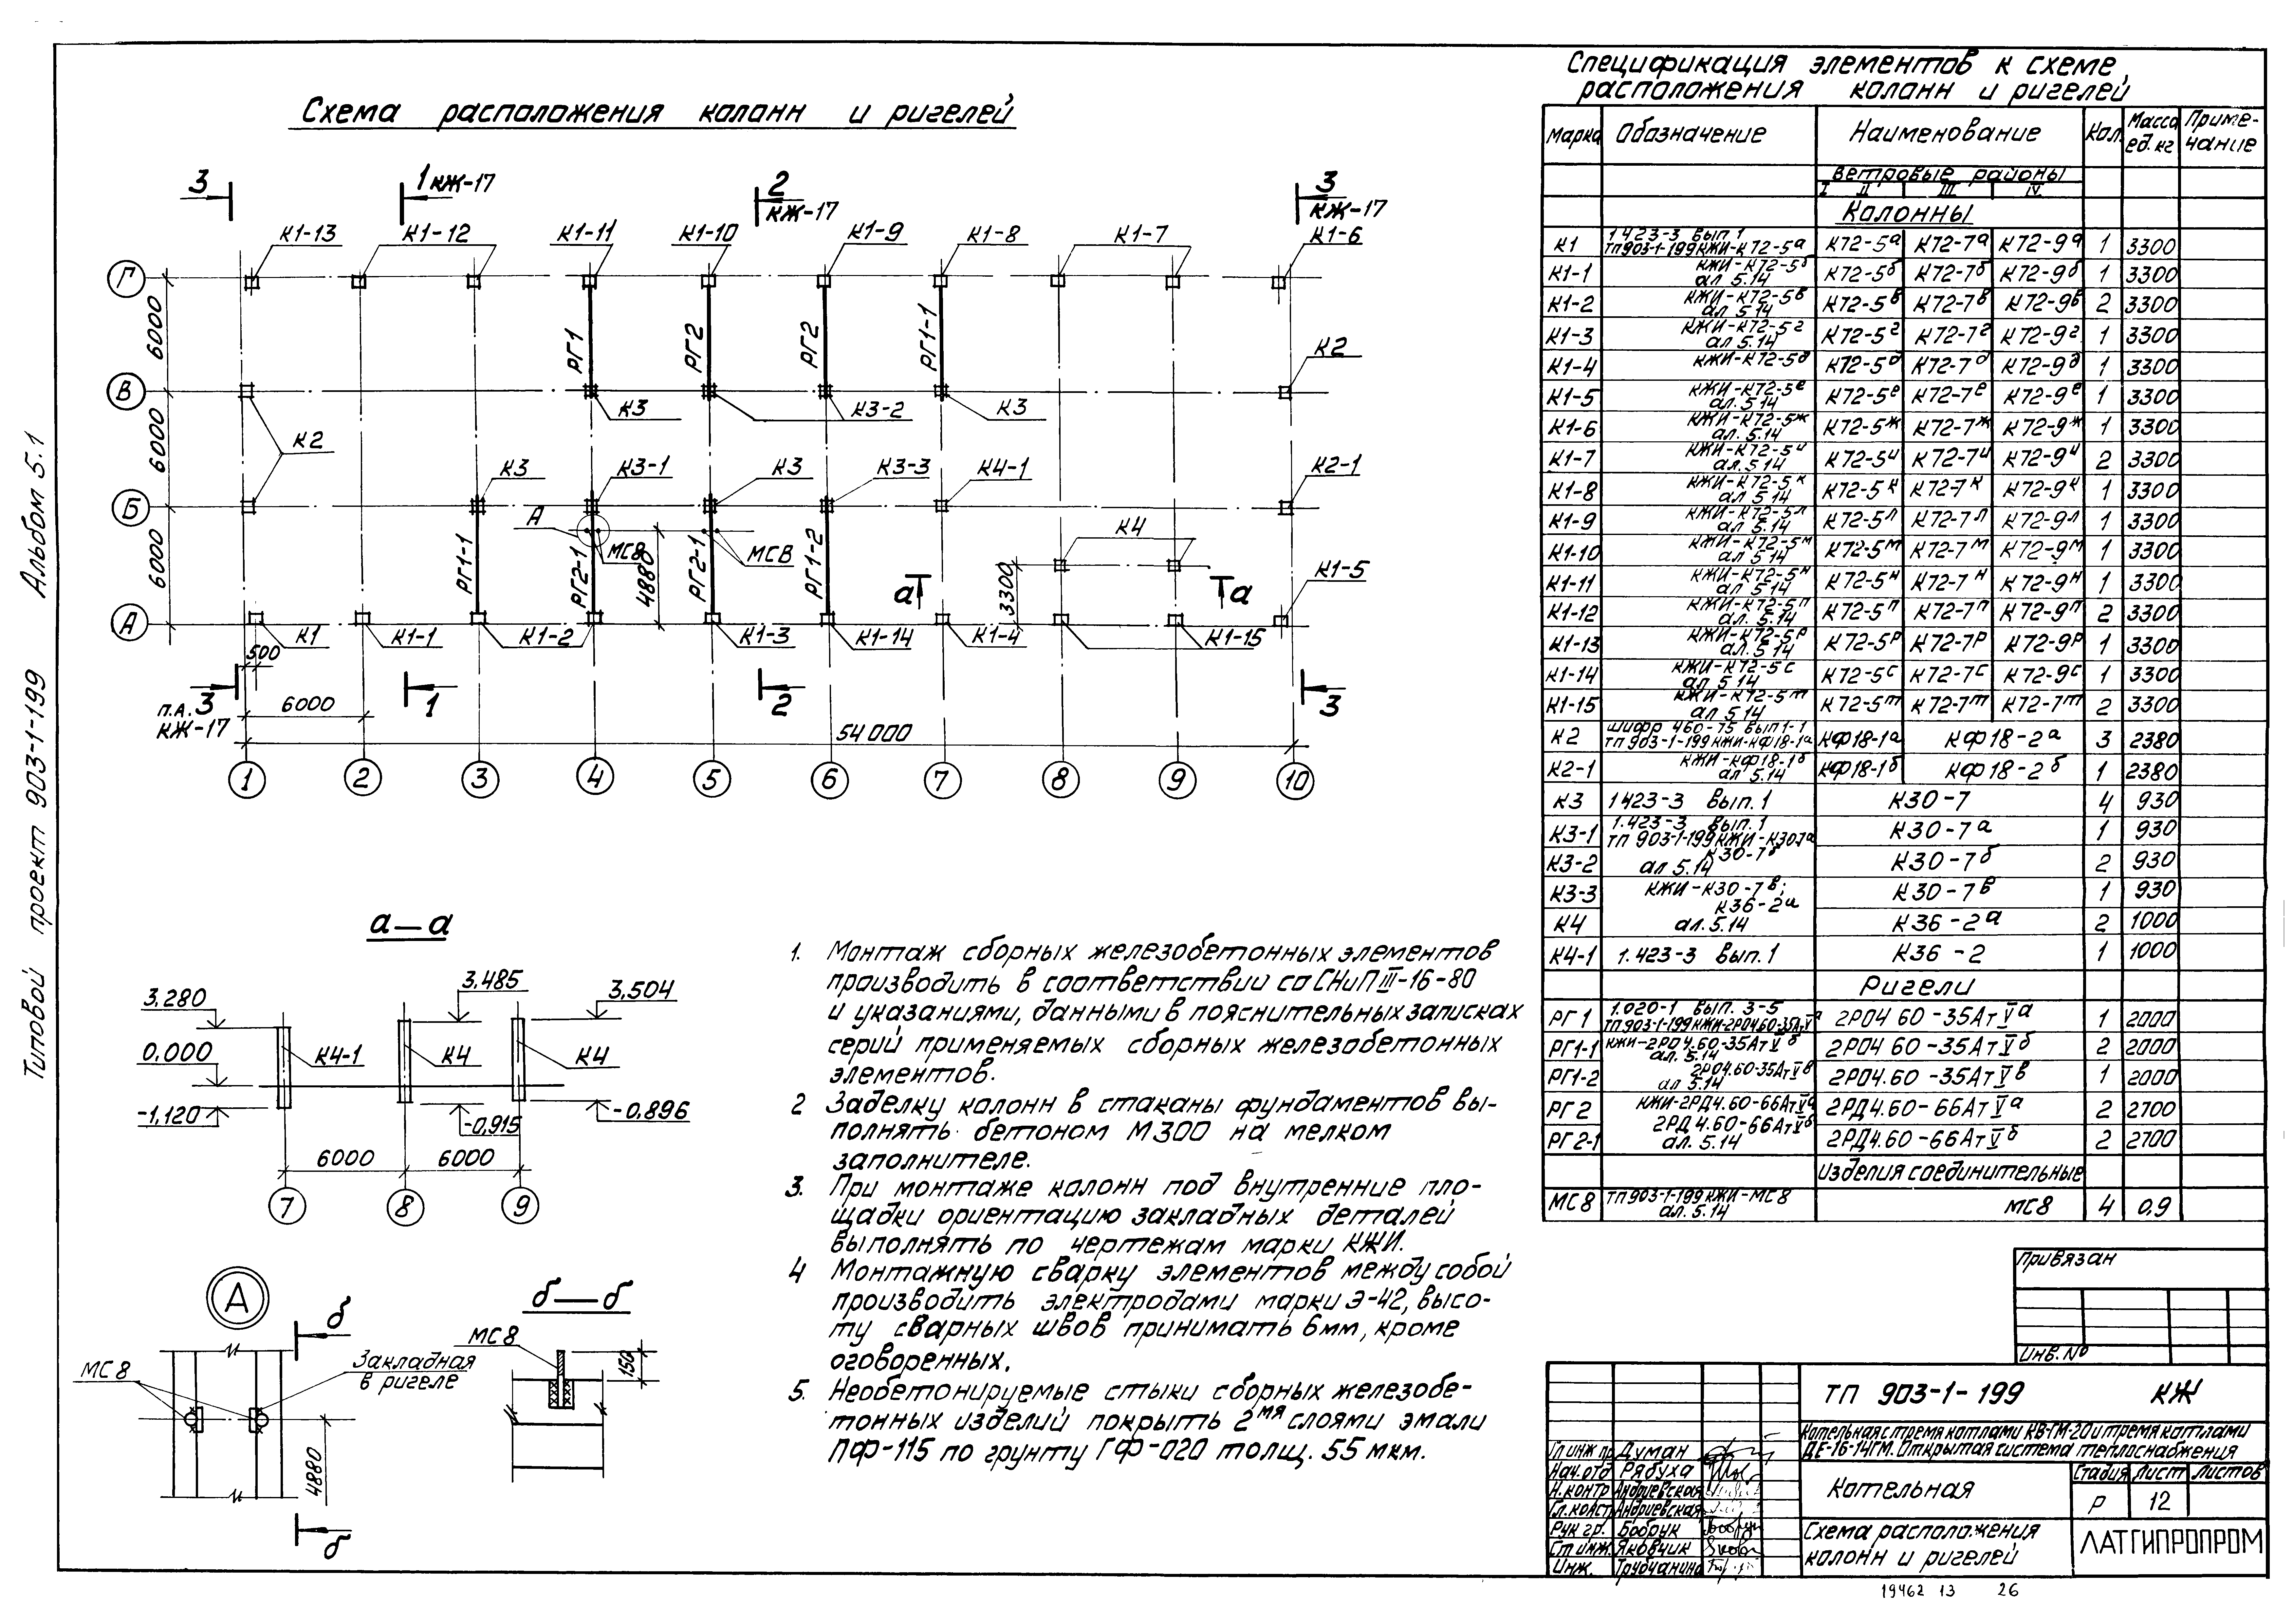 Альбом 5.1
Типовой проект 903-1-199
Схема расположения колонн и ригелей
3
1 КЖ-17
2
КЖ-17
3
КЖ-17
К1-13 К1-12 К1-11 К1-10 К1-9 К1-8 К1-7 К1-6
Г
6000
РГ1 РГ2 РГ2 РГ1-1
К2
В
К3 К3-2 К3
6000
К2
К3 К3-1 К3 К3-3 К4-1 К2-1
Б
А
МС8 МС8
К4
6000
РГ1-1 РГ2-1 4880 РГ2-1 РГ1-2
а а
3300
К1-5
А
К1 К1-1 К1-2 К1-3 К1-14 К1-4 К1-15
500
п.А. 3
КЖ-17
1 2 3
6000
54 000
1 2 3 4 5 6 7 8 9 10
а—а
3,280 3,485 3,504
0,000 К4-1 К4 К4
-1,120 -0,915 -0,896
6000 6000
7 8 9
А
б
МС8
Закладная
в ригеле
4880
б
б—б
МС8
150
1. Монтаж сборных железобетонных элементов
производить в соответствии со СНиП III-16-80
и указаниями, данными в пояснительных записках
серий применяемых сборных железобетонных
элементов.
2 Заделку колонн в стаканы фундаментов вы-
полнять бетоном М300 на мелком
заполнителе.
3. При монтаже колонн под внутренние пло-
щадки ориентацию закладных деталей
выполнять по чертежам марки КЖИ.
4 Монтажную сварку элементов между собой
производить электродами марки Э-42, высо-
ту сварных швов принимать 6мм, кроме
оговоренных.
5. Необетонируемые стыки сборных железобе-
тонных изделий покрыть 2мя слоями эмали
ПФ-115 по грунту ГФ-020 толщ. 55 мкм.
Спецификация элементов к схеме
расположения колонн и ригелей
Марка Обозначение Наименование Кол. Масса ед. кг Приме-чание
Ветровые районы
I II III IV
Колонны
К1 1.423-3 вып. 1 ТП903-1-199 КЖИ-К72-5а К72-5а К72-7а К72-9а 1 3300
К1-1 КЖИ-К72-5б ал 5.14 К72-5б К72-7б К72-9б 1 3300
К1-2 КЖИ-К72-5в ал 5.14 К72-5в К72-7в К72-9в 2 3300
К1-3 КЖИ-К72-5г ал 5.14 К72-5г К72-7г К72-9г 1 3300
К1-4 КЖИ-К72-5д К72-5д К72-7д К72-9д 1 3300
К1-5 КЖИ-К72-5е ал. 5.14 К72-5е К72-7е К72-9е 1 3300
К1-6 КЖИ-К72-5ж ал. 5.14 К72-5ж К72-7ж К72-9ж 1 3300
К1-7 КЖИ-К72-5и ал. 5.14 К72-5и К72-7и К72-9и 2 3300
К1-8 КЖИ-К72-5к ал 5.14 К72-5к К72-7к К72-9к 1 3300
К1-9 КЖИ-К72-5л ал 5.14 К72-5л К72-7л К72-9л 1 3300
К1-10 КЖИ-К72-5м ал 5.14 К72-5м К72-7м К72-9м 1 3300
К1-11 КЖИ-К72-5н ал 5.14 К72-5н К72-7н К72-9н 1 3300
К1-12 КЖИ-К72-5п ал 5.14 К72-5п К72-7п К72-9п 2 3300
К1-13 КЖИ-К72-5р ал. 5.14 К72-5р К72-7р К72-9р 1 3300
К1-14 КЖИ-К72-5с ал 5.14 К72-5с К72-7с К72-9с 1 3300
К1-15 КЖИ-К72-5т ал 5.14 К72-5т К72-7т К72-7т 2 3300
К2 шифр 460-75 вып 1-1 ТП 903-1-199 КЖИ-КФ18-1а КФ18-1а КФ18-2а 3 2380
К2-1 КЖИ-КФ18-1б ал 5.14 КФ18-1б КФ18-2б 1 2380
К3 1423-3 вып. 1 К30-7 4 930
К3-1 1.423-3 вып. 1 ТП 903-1-199 КЖИ-К30-7а К30-7а 1 930
К3-2 К30-7б ал 5.14 К30-7б 2 930
К3-3 КЖИ-К30-7в; К30-7в 1 930
К4 К36-2а ал. 5.14 К36-2а 2 1000
К4-1 1.423-3 вып. 1 К36-2 1 1000
Ригели
РГ1 1.020-1 вып. 3-5 ТП903-1-199 КЖИ-2РО4.60-35АтVа 2РО4 60-35АтVа 1 2000
РГ1-1 КЖИ-2РО4.60-35АтVб ал. 5.14 2РО4 60-35АтVб 2 2000
РГ1-2 2РО4.60-35АтVв ал 5.14 2РО4.60-35АтVв 1 2000
РГ2 КЖИ-2РД4.60-66АтVа 2РД4.60-66АтVа 2 2700
РГ2-1 2РД4.60-66АтVб ал. 5.14 2РД4.60-66АтVб 2 2700
изделия соединительные
МС8 ТП903-1-199 КЖИ-МС8 ал. 5.14 МС8 4 0,9
Привязан
Инв. №
ТП 903-1-199 КЖ
Котельная с тремя котлами КВ-ГМ-20 и тремя котлами
ДЕ-16-14ГМ. Открытая система теплоснабжения
Гл инж пр Думан
Нач. отд Рябуха
Н. контр Андриевская
Гл. конст. Андриевская
Рук гр. Бобрук
Ст инж. Яковчик
Инж. Трубчанина
Котельная
Стадия Лист Листов
Р 12
Схема расположения
колонн и ригелей
ЛАТГИПРОПРОМ
19462 13 26